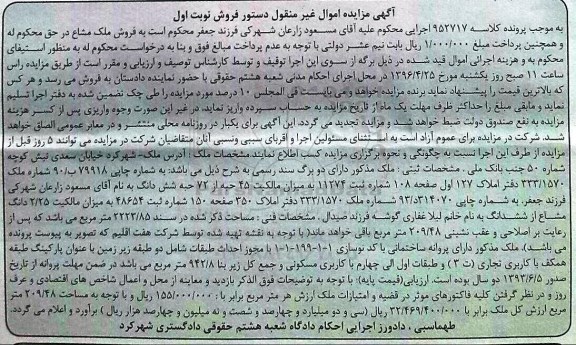 آگهی مزایده اموال غیر منقول دستور فروش نوبت اول
به موجب پرونده کلاسه ۹۵۲۷۱۷ اجرایی محکوم علیه آقای مسعود زارعان شهرکی فرزند جعفر محکوم است به فروش ملک مشاع در حق محکوم له
و همچنین پرداخت مبلغ ۱/۰۰۰/۰۰۰ ریال بابت نیم عشر دولتی با توجه به عدم پرداخت مبالغ فوق و بنا به درخواست محکوم له به منظور استیفای
محکوم به و هزینه اجرائی اموال قید شده در ذیل برگه از سوی این اجرا توقیف و توسط کارشناس توصیف و ارزیابی و مقرر است از طریق مزایده راس
ساعت ۱۱ صبح روز یکشنبه مورخ ۱۳۹۶/۴/۲۵ در محل اجرای احکام مدنی شعبه هشتم حقوقی با حضور نماینده دادستان به فروش می رسد و هر کس
که بالاترین قیمت را پیشنهاد نماید برنده مزایده خواهد و می بایست فی المجلس ۱۰ درصد مورد مزایده را طی چک تضمین شده به دفتر اجرا تسلیم
نماید و مابقی مبلغ را حداکثر ظرف مهلت یک ماه از تاریخ مزایده به حساب سپرده واریز نماید. در غیر این صورت وجوه واریزی پس از کسر هزینه
مزایده به نفع صندوق دولت ضبط خواهد شد و مزایده تجدید می گردد. این آگهی برای یکبار در روزنامه محلی منتشر و در معابر عمومی الصاق خواهد
شد. شرکت در مزایده برای عموم آزاد است به استثنای مسئولین اجرا و اقربای سببی ونسبی آنان متقاضیان شرکت در مزایده می توانند ۵ روز قبل از
مزایده از طرف این اجرا نسبت به چگونگی و نحوه برگزاری مزایده کسب اطلاع نمایند.مشخصات ملک: آدرس ملک- شهرکرد خیابان سعدی نبش کوچه
شماره ۵۰ جنب بانک ملی . مشخصات ثبتی : ملک مذکور دارای دو برگ سند رسمی به شرح ذیل می باشد: به شماره چاپی ۷۹۹۱۸ ب/۹۰ شماره ملک
۳۳۳/۱۵۷۰ دفتر املاک ۱۲۷ اول صفحه ۱۰۸ شماره ثبت ۱۱۲۷۴ به میزان مالکیت ۴۵ حبه از ۷۲ حبه شش دانگ به نام آقای مسعود زارعان شهرکی
فرزند جعفر. به شماره چاپی ۳۱۴۰۷۰د/۹۳ شماره ملک ۳۳۳/۱۵۷۰ دفتر املاک ۳۵۰ صفحه ۱۵۰ شماره ثبت ۴۸۶۵۴ به میزان مالکیت ۲/۲۵ دانگ
مشاع از ششدانگ به نام خانم لیلا غفاری گوشه فرزند صیدال . مشخصات فنی : مساحت ذکر شده در سند ۲۲۲۳/۸۵ متر مربع می باشد که پس از
رعایت بر اصلاحی و عقب نشینی ۲۰۹/۴۸ متر مربع باقی خواهد ماند( با توجه به نقشه تهیه شده توسط شرکت هفت اقلیم که تصویر به پیوست پرونده
می باشد.). ملک مذکور دارای پروانه ساختمانی با کد نوسازی ۱-۱-۱۹۹-۱-۱ با مجوز احداث طبقات شامل دو طبقه زیر زمین با عنوان پارکینگ طبقه
همکف با کاربری تجاری (ت ۳ ) و طبقات اول الی چهارم با کاربری مسکونی و جمع کل زیر بنا ۹۴۲/۸ متر مربع می باشد در ضمن مهلت پروانه از تاریخ
صدور ۱۳۹۳/۶/۵ دو سال بوده است. ارزیابی(قیمت پایه): با توجه به توضیحات فوق الذکر بازدید و معاینه از محل و اعمال شاخص های اقتصادی و عرف
روز و در نظر گرفتن کلیه فاکتورهای موثر در قضیه و امتیازات ملک ارزش هر متر مربع برابر با : ۱۵۵/۰۰۰/۰۰۰ ریال و با توجه به مساحت ۲۰۹/۴۸ متر
مربع ارزش کل ملک برابر با ۳۲/۴۶۹/۴۰۰/۰۰۰ ریال (سی و دو میلیارد و چهارصد و شصت و نه میلیون و چهارصد هزار ریال ) برآورد و اعلام می گردد.
طهماسبی ، دادورز اجرایی احکام دادگاه شعبه هشتم حقوقی دادگستری شهرکرد